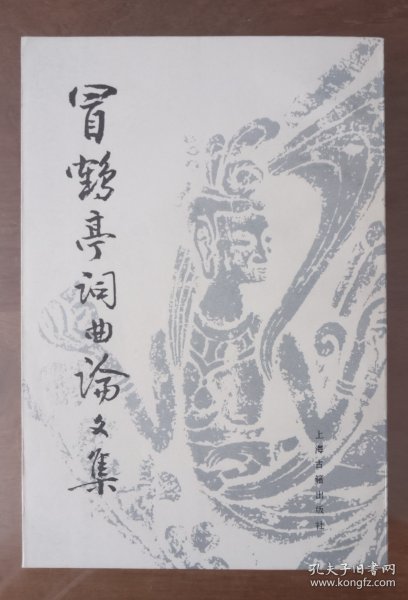 冒鹤亭词曲论文集
上海古籍出版社
孔夫子旧书网
www.kongfz.com